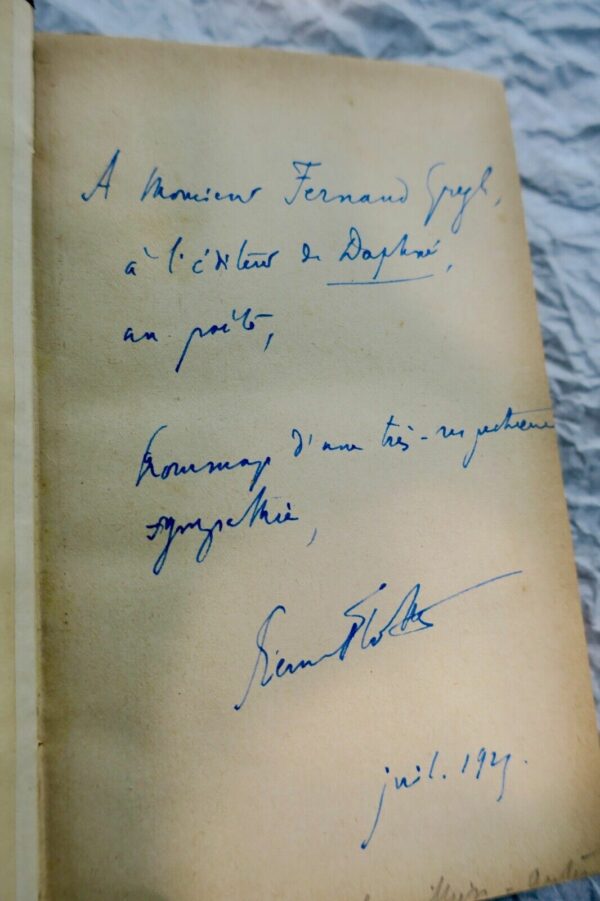 A Monsieur Fernand Gregh,
à l'éditeur de Daphné,
au poète,
hommage d'une très-respectueuse
sympathie,
Pierre Flottes
juil. 192